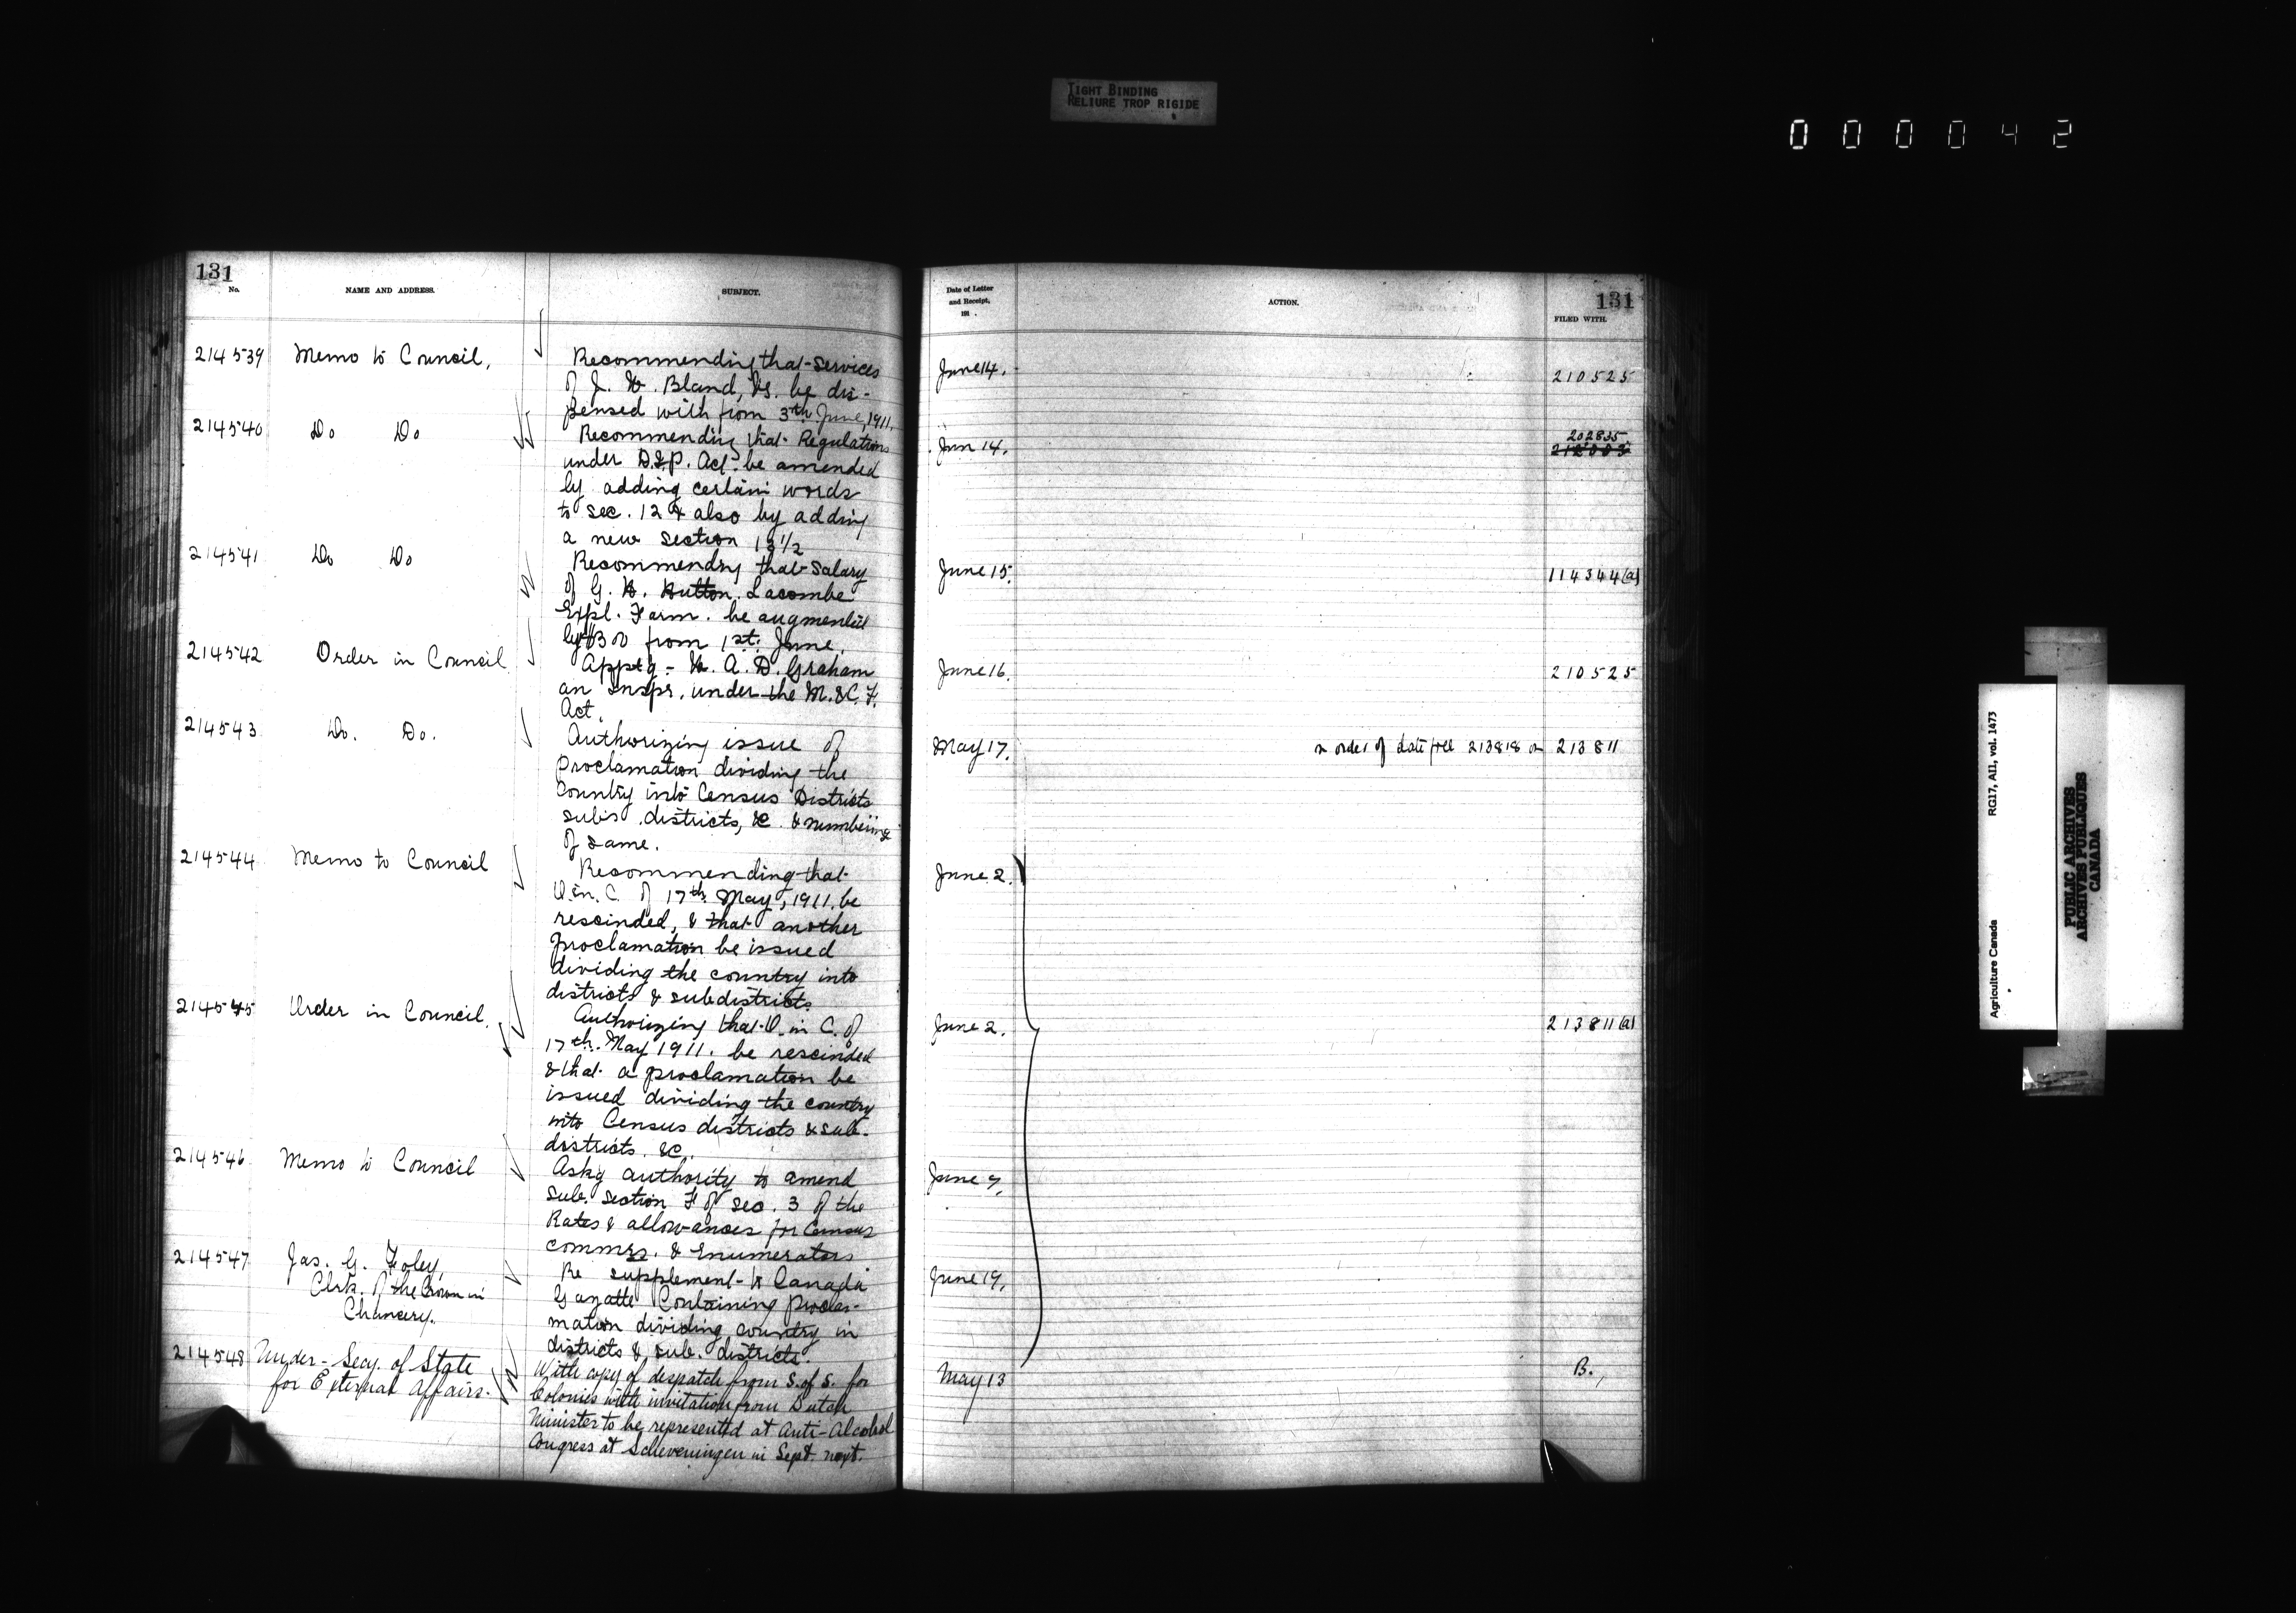 TIGHT BINDING
RELIURE TROP RIGIDE
000042
131
No.
NAME AND ADDRESS.
SUBJECT.
214539 Memo to Council,
Recommending that services
of J. W. Bland, VS. be dis-
pensed with from 3th June, 1911,
214540 Do Do
Recommending that Regulations
under D.I.P. Act be amended
by adding certain words
to sec. 12 & also by adding
a new section 13 1/2
214541 Do Do
Recommendng that Salary
of G. H. Hutton. Lacombe
Expl. Farm. be augmented
by $300 from 1st. June.
214542 Order in Council
Apptg - W. A. D. Graham
an Inspr. under the M. & C. F.
Act.
214543 Do. Do.
Authorizing issue of
proclamation dividing the
Country into Census Districts
subs districts, &c. & numbering
of same.
214544 Memo to Council
Recommending that
O. in. C. of 17th. May, 1911, be
rescinded, & that another
proclamation be issued
dividing the country into
districts & subdistricts.
214545 Order in Council.
Authorizing that O. in C. of
17th. May 1911. be rescinded
& that a proclamation be
issued dividing the country
into Census districts & sub-
districts. &c.
214546 Memo to Council
Askg authority to amend
sub. section F of sec. 3 of the
Rates & allowances for Census
commrs. & Enumerators
214547 Jas. G. Foley,
Clrk. of the Crown in
Chancery.
Re supplement to Canada
Gazette Containing procla-
mation dividing country in
districts & sub. districts.
214548 Under-Secy. of State
for External Affairs.
With copy of despatch from S. of S. for
Colonies with invitation from Dutch
Minister to be represented at Anti-Alcohol
Congress at Scheveningen in Sept. next.
Date of Letter
and Receipt,
191 .
ACTION.
131
FILED WITH.
June 14. 210525
202835
Jun 14.
June 15. 114344(a)
June 16. 210525
May 17. order of date 213818 213811
June 2.
June 2. 213811(a)
June 7.
June 19.
May 13 B.
Agriculture Canada RG17, AII, vol. 1473
PUBLIC ARCHIVES
ARCHIVES PUBLIQUES
CANADA